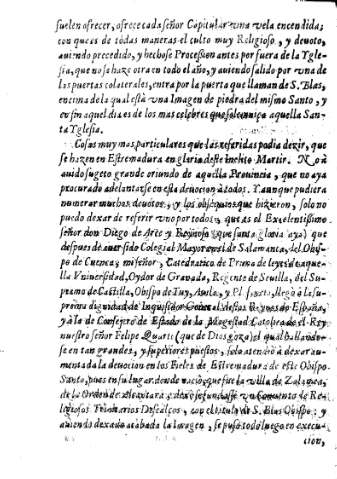 suelen ofrecer, ofrece cada señor Capitular vna vela encendida;
con que es de todas maneras el culto muy Religioso, y deuoto,
auiendo precedido, y hechose Procession antes por fuera de la Ygle-
sia, que no se haze otra en todo el año, y auiendo salido por vna de
las puertas colaterales, entra por la puerta que llaman de S. Blas,
encima de la qual està vna Imagen de piedra del mismo Santo, y
en fin aquel dia es de los mas celebres que aquella San-
ta Yglesia.
Cosas muy mas particulares que las referidas podia dezir, que
se hazen en Estremadura en gloria deste inclito Martir. No à
auido sugeto grande oriundo de aquella Prouincia, que no aya
procurado adelantarse en esta deuocion à todos. Y aunque pudiera
numerar muchos deuotos, y los obsequios que hizieron, solo no
puedo dexar de referir vno por todos, que es el Excelentissimo
señor don Diego de Arce y Reynoso (que santa gloria aya) que
despues de auer sido Colegial Mayor en el de Salamanca, del Obis-
po de Cuenca, mi señor, Catedratico de Prima de leyes de aque-
lla Vniuersidad, Oydor de Granada, Regente de Seuilla, del Su-
premo de Castilla, Obispo de Tuy, Auila, y Plasencia, llegò à la su-
prema dignidad de Inquisidor General destos Reynos de España,
y à la de Consejero de Estado de la Magestad Catolica del Rey
nuestro señor Felipe Quarto (que Dios goza) el qual hallando-
se en tan grandes, y superiores puestos, solo atendiò à dexar au-
mentada la deuocion en los Fieles de Estremadura de este Obispo
Santo, pues en su lugar donde nacio, que fue la villa de Zalamea,
de la Orden de Alcantara, dexò fundado vn Conuento de Re-
ligiosos Trinitarios Descalços, con titulo de S. Blas Obispo; y
auiendo dexado acabada la Imagen, se puso todo luego en execu-
cion,